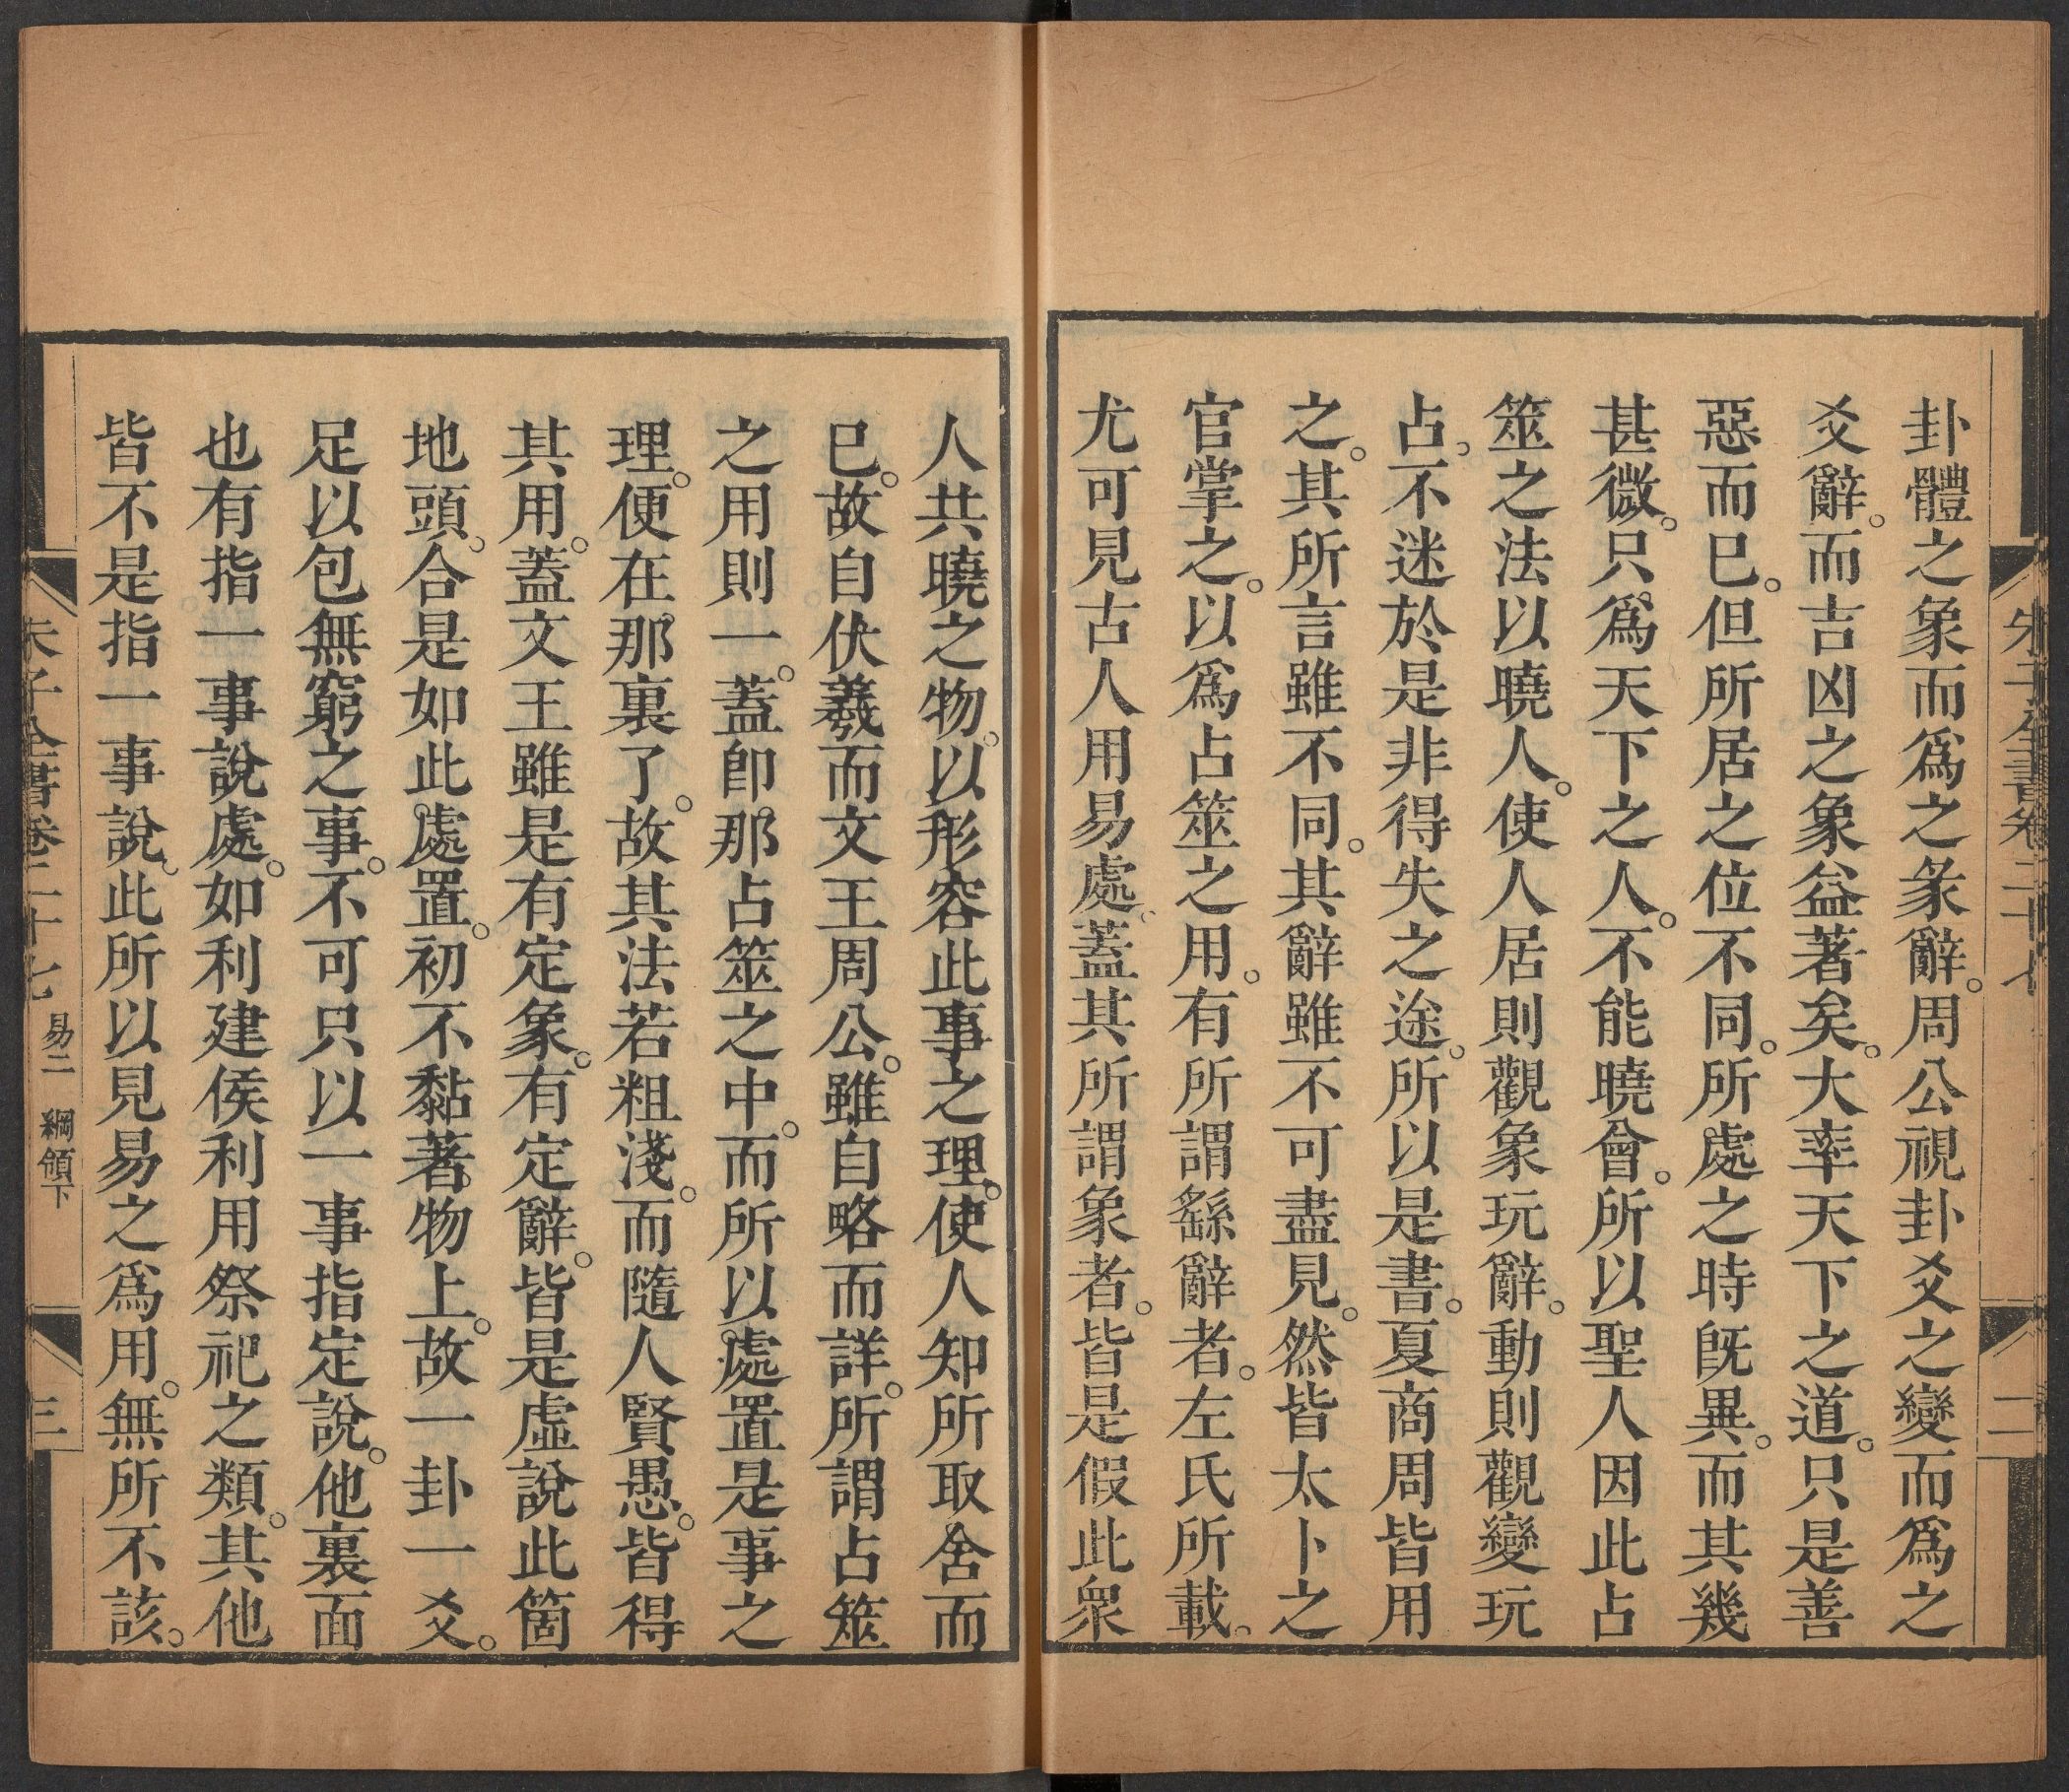 朱子全書卷二十七
二
卦體之象而爲之彖辭。周公視卦爻之變而爲之
爻辭。而吉凶之象益著矣。大率天下之道。只是善
惡而已。但所居之位不同。所處之時旣異。而其幾
甚微。只爲天下之人。不能曉會。所以聖人因此占
筮之法以曉人。使人居則觀象玩辭。動則觀變玩
占。不迷於是非得失之途。所以是書。夏商周皆用
之。其所言雖不同。其辭雖不可盡見。然皆太卜之
官掌之。以爲占筮之用。有所謂繇辭者。左氏所載。
尤可見古人用易處。蓋其所謂象者。皆是假此衆
人共曉之物。以形容此事之理。使人知所取舍而
已。故自伏羲而文王周公。雖自略而詳。所謂占筮
之用則一。蓋卽那占筮之中。而所以處置是事之
理。便在那裏了。故其法若粗淺。而隨人賢愚。皆得
其用。蓋文王雖是有定象。有定辭。皆是虛說此箇
地頭。合是如此處置。初不黏著物上。故一卦一爻。
足以包無窮之事。不可只以一事指定說。他裏面
也有指一事說處。如利建侯利用祭祀之類。其他
皆不是指一事說。此所以見易之爲用。無所不該。
朱子全書卷二十七 易二 綱領下
三